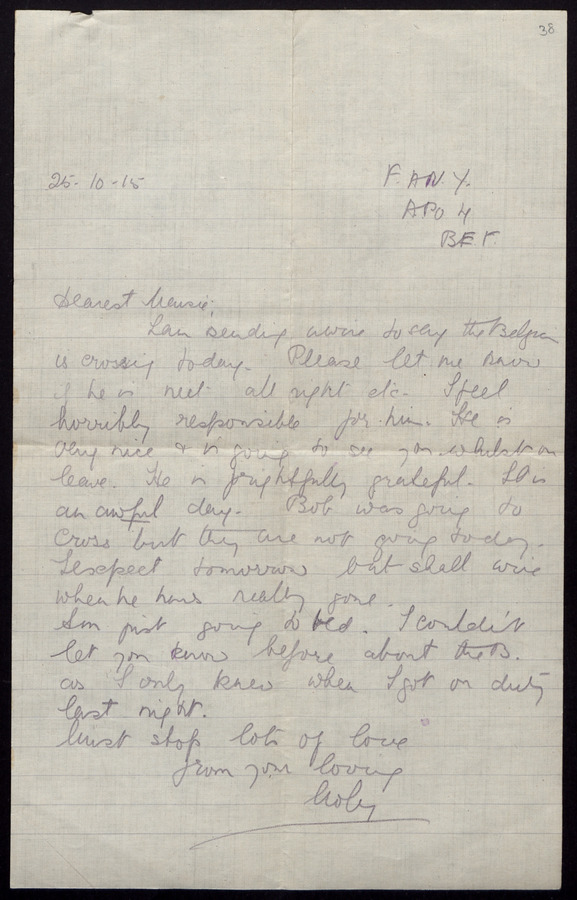 38
25-10-15
F.A.N.Y.
APO 4
BEF.
Dearest Mousie,
I am sending a wire to say the Belgian
is crossing today. Please let me know
if he is met all right etc. I feel
horribly responsible for him. He is
very nice & is going to see you whilst on
leave. He is frightfully grateful. It is
an awful day. Bob was going to
cross but they are not going today.
I expect tomorrow but shall wire
when he has really gone.
Am just going to bed. I couldn't
let you know before about the B.
as I only knew when I got on duty
last night.
Must stop lots of love
from your loving